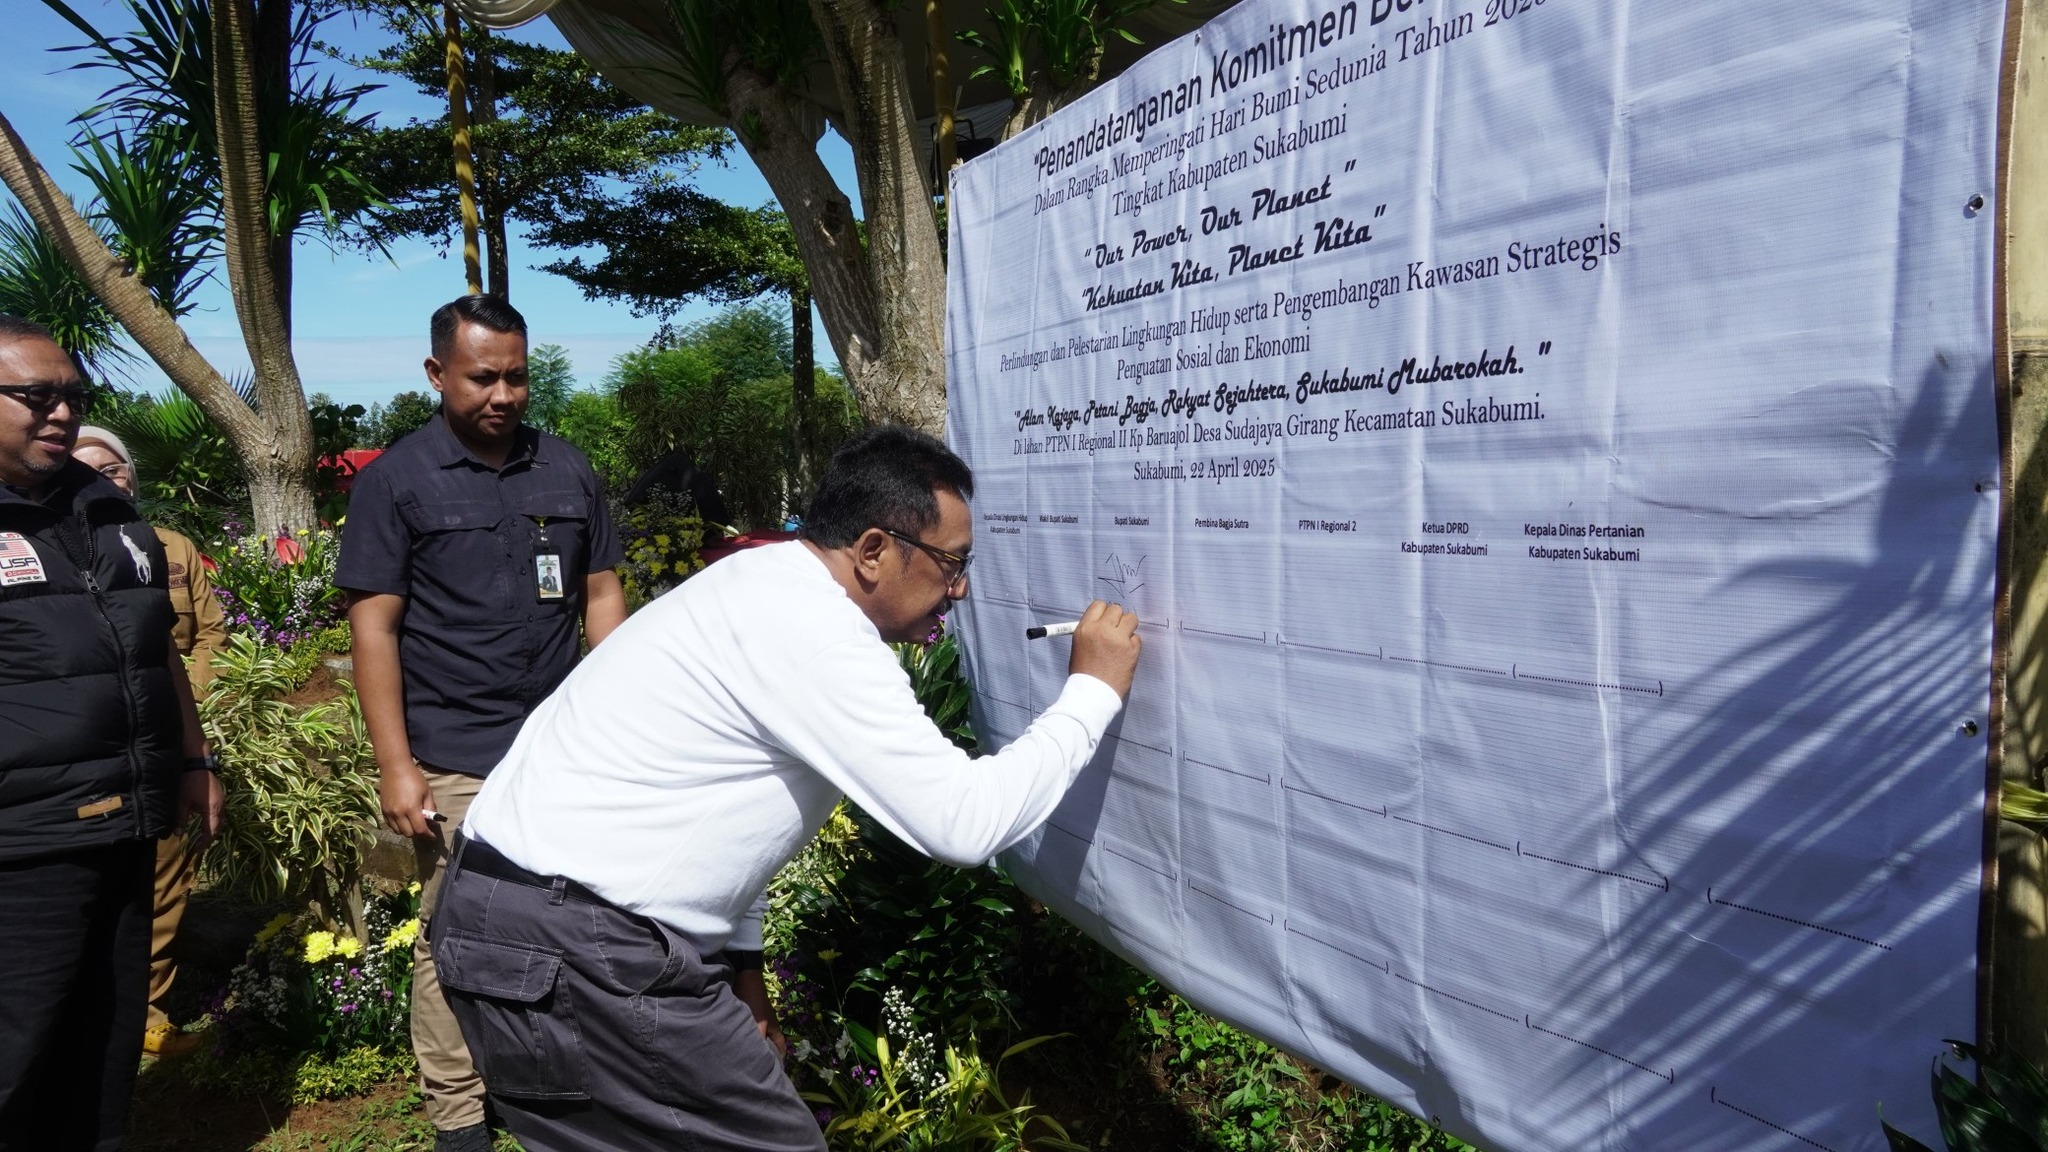 "Penandatanganan Komitmen
Dalam Rangka Memperingati Hari Bumi Sedunia Tahun
Tingkat Kabupaten Sukabumi
"Our Power, Our Planet"
"Kekuatan Kita, Planet Kita"
Perlindungan dan Pelestarian Lingkungan Hidup serta Pengembangan Kawasan Strategis
Penguatan Sosial dan Ekonomi
"Alam Kajaga, Petani Bagja, Rakyat Sejahtera, Sukabumi Mubarokah."
Di lahan PTPN I Regional II Kp Baruajol Desa Sudajaya Girang Kecamatan Sukabumi.
Sukabumi, 22 April 2025
Kepala Dinas Lingkungan Hidup
Kabupaten Sukabumi
Wakil Bupati Sukabumi
Bupati Sukabumi
Pembina Bagja Sutra
PTPN I Regional 2
Ketua DPRD
Kabupaten Sukabumi
Kepala Dinas Pertanian
Kabupaten Sukabumi
USA